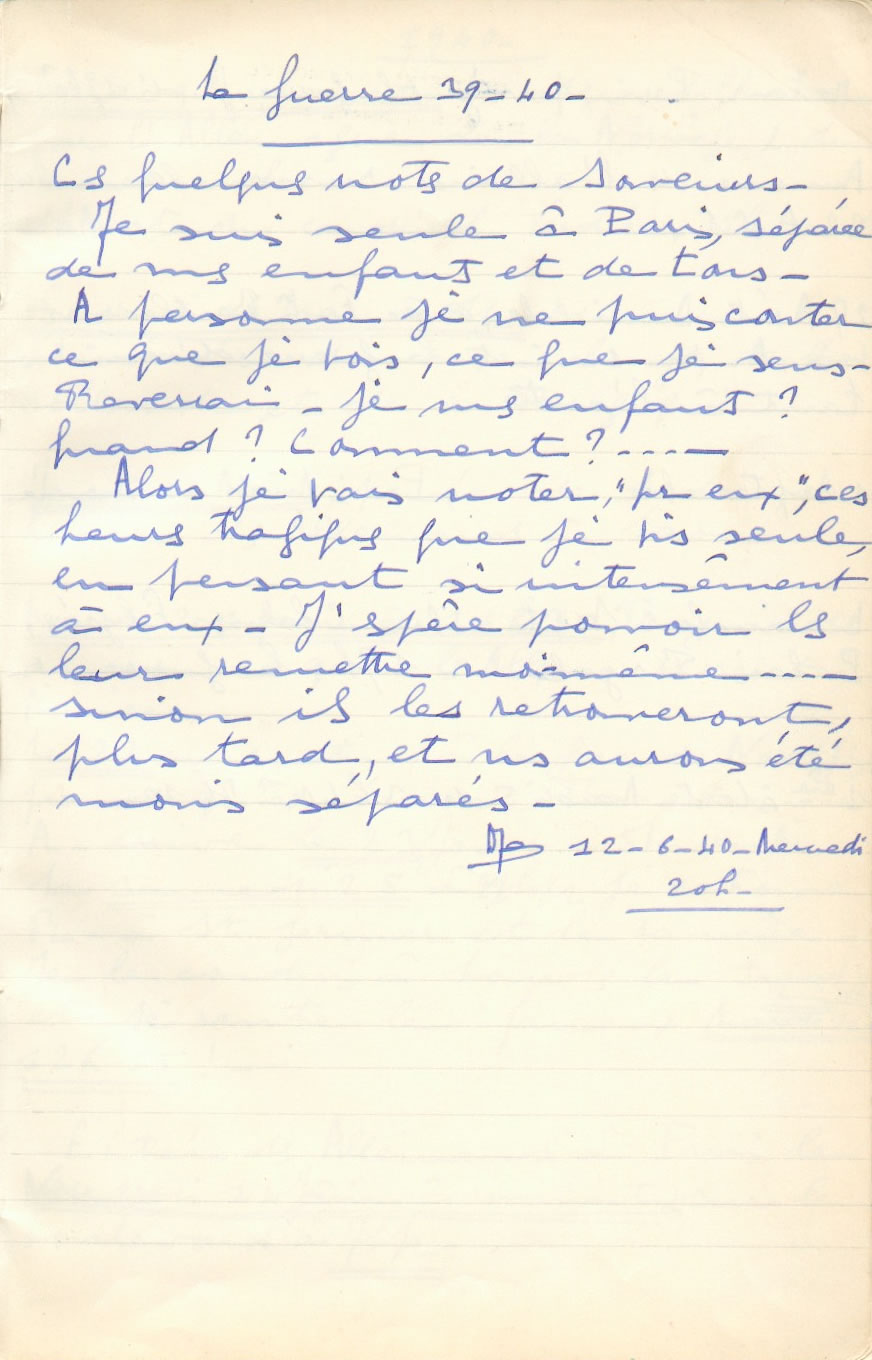 La guerre 39-40-
Ces quelques notes de souvenirs-
Je suis seule à Paris, séparée
de mes enfants et de tous-
A personne je ne puis conter
ce que je vois, ce que je sens-
Reverrai-je mes enfants ?
quand ? Comment ? ----
Alors je vais noter, "pr eux", ces
heures tragiques que je vis seule,
en pensant si intensêment
à eux - J'espère pouvoir les
leur remettre moi-même ----
sinon ils les retrouveront,
plus tard, et ns aurons été
moins séparés -
12-6-40-Mercredi
20h-